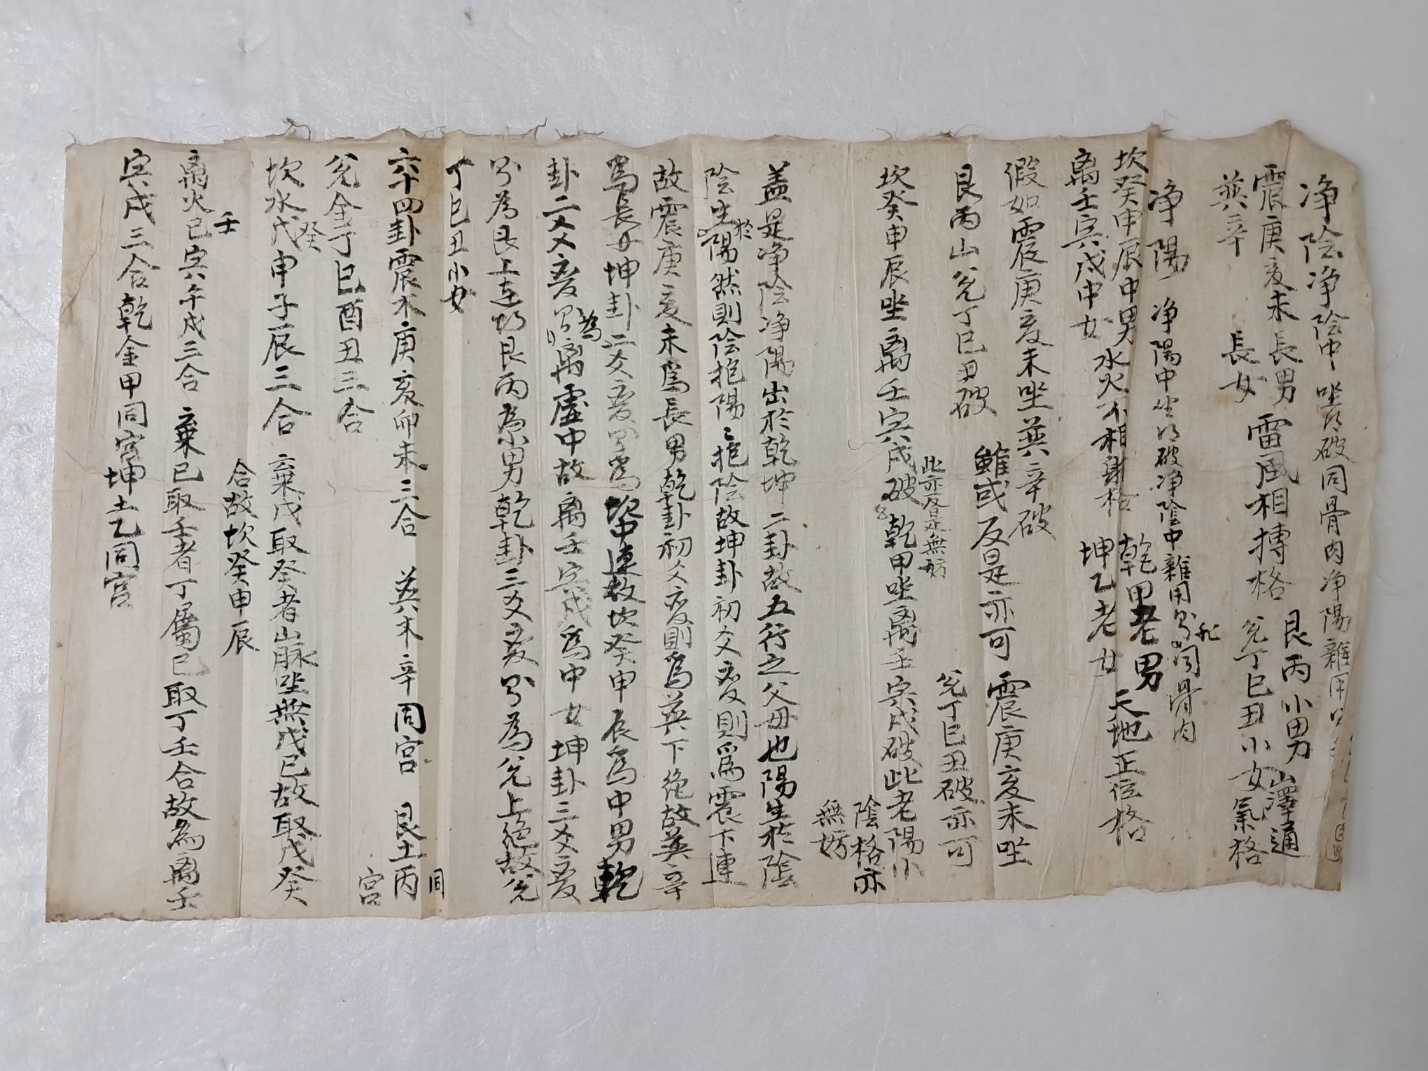 净陰 净陰中坐得破同骨肉净陽雜用
震庚亥未長男 雷風相搏格 艮丙小男 山澤通
巽辛 長女 兌丁巳丑小女 氣格
净陽 净陽中坐得破净陰中雜用 則非同骨肉
坎癸申辰中男 水火不相射格 乾甲老男 天地正位格
离壬寅戌中女 坤乙老女
假如震庚亥未坐巽辛破 雖或反是亦可 震庚亥未坐
艮丙山兌丁巳丑破 兌丁巳丑破亦可
坎癸申辰坐离壬寅戌破 此亦反是無妨 乾甲坐离壬寅戌破此老陽小
陰格亦
無妨
盖是净陰净陽出於乾坤二卦故五行之父母也陽生於陰
陰生於陽然則陰抱陽陽抱陰故坤卦初爻变則爲震下連
故震庚亥未爲長男乾卦初爻变則爲巽下絶故巽辛
爲長女坤卦二爻变則爲坎中連故坎癸申辰爲中男乾
卦二爻变則為离虛中故离壬寅戌爲中女坤卦三爻变
則為艮上連故艮丙為小男乾卦三爻变則為兌上絶故兌
丁巳丑小女
六十四卦震木庚亥卯未三合 巽木辛同宮 艮土丙同
宮
兌金丁巳酉丑三合
坎水戊癸申子辰三合 棄戊取癸者山脉坐無戊己故取戊癸
合故坎癸申辰
离火己壬寅午戌三合 棄己取壬者丁屬己取丁壬合故為离壬
寅戌三合乾金甲同宮坤土乙同宮